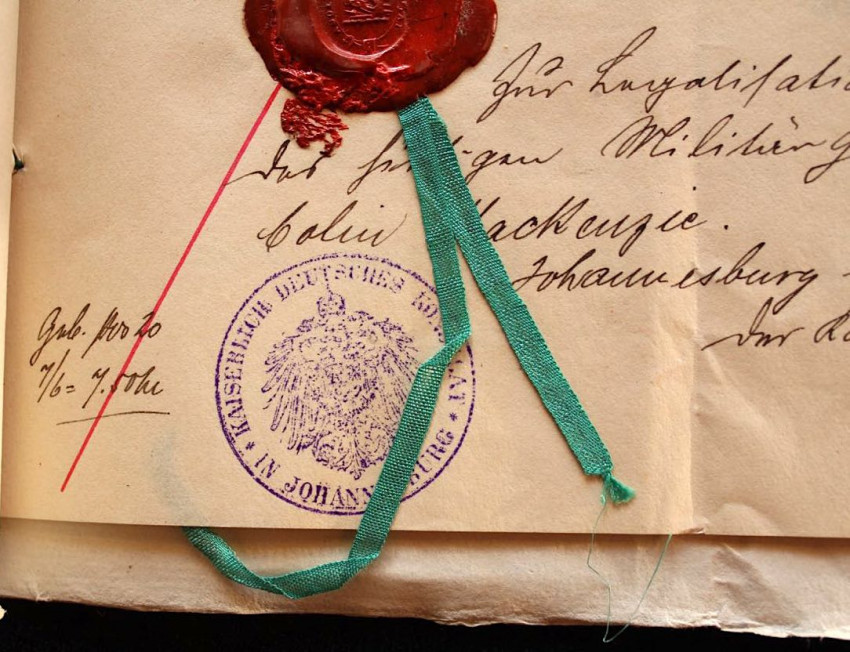 Zur Legalisati
des hi-gen Militär G
Colin Mackenzie.
Johannesburg
Der K
Geb. No 20
7/6 = 7.50
* KAISERLICH DEUTSCHES KON AT * IN JOHANN BURG